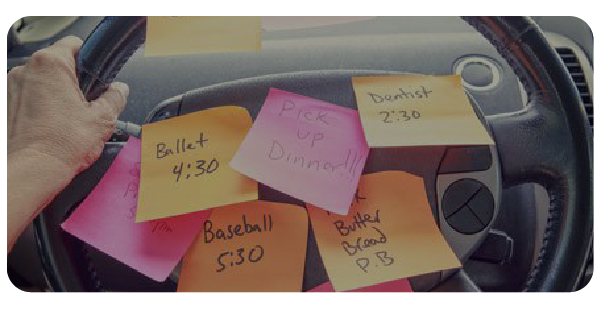 Dentist
2:30
Pick
up
Dinner!!
Ballet
4:30
Baseball
5:30
Butter
Bread
P.B